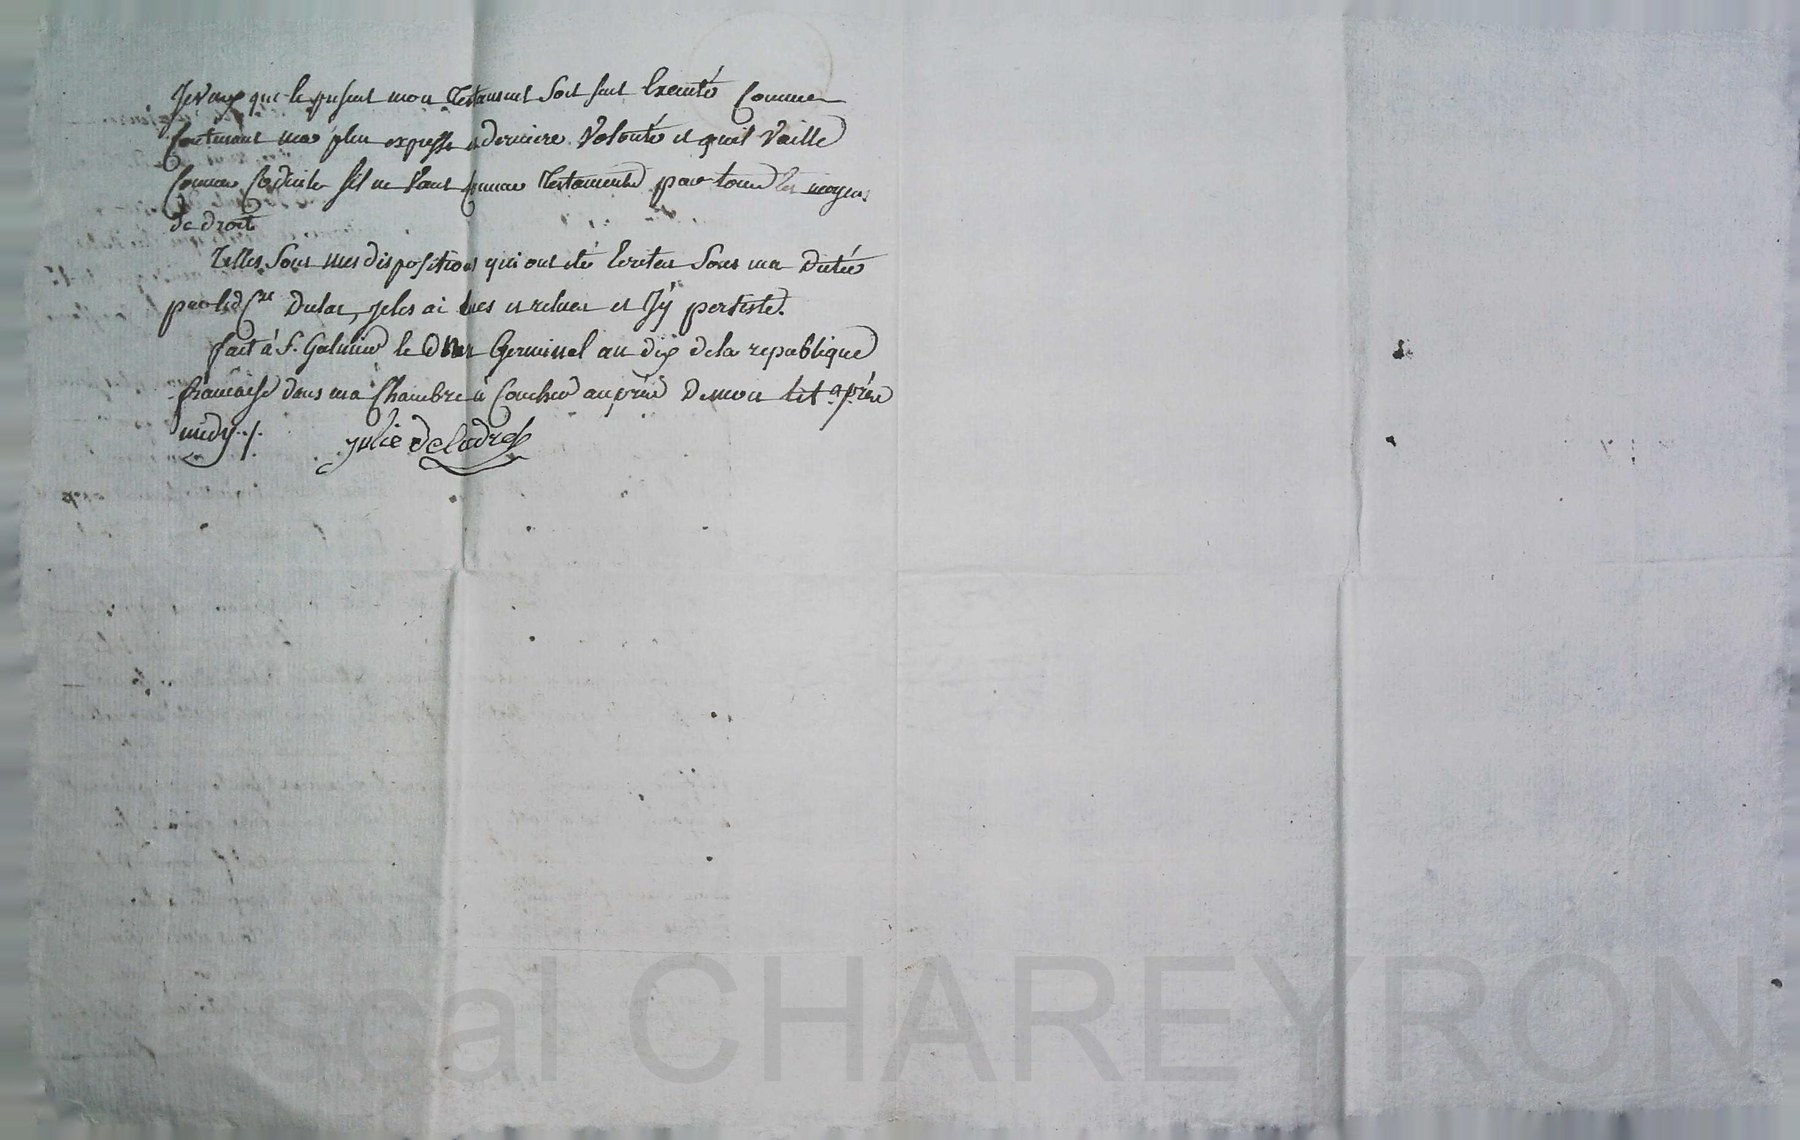 Je veux que le présent mon Testament soit seul Executé Comme
Contenant ma plus expresse et derniere Volonté et quil Vaille
Comme Codicile sil ne Vaut Comme Testament par tous les moyens
de droit
Telles Sont mes dispositions qui ont été Ecrites Sous ma Dictée
par led Cen Dulac, je les ai lues et relues et J'y persiste.
fait à S. Galmier le Germinal an dix de la republique
francaise dans ma Chambre à Coucher auprès de mon lit après
midy ./. julie De
scal CHAREYRON